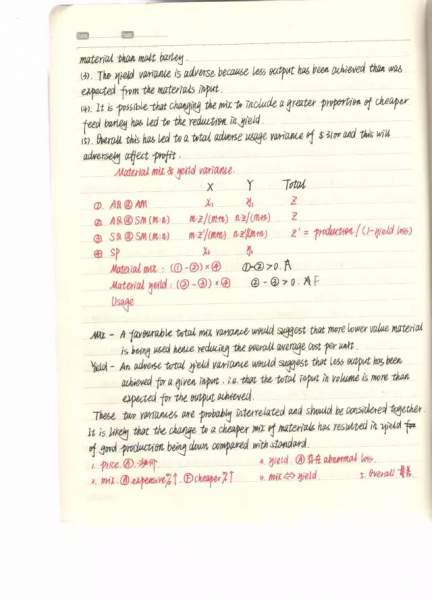 material than malt barley.
(3). The yield variance is adverse because less output has been achieved than was
expected from the materials input.
(4). It is possible that changing the mix to include a greater proportion of cheaper
feed barley has led to the reduction in yield.
(5). Overall this has led to a total adverse usage variance of $ 3100 and this will
adversely affect profit.
Material mix & yeild variance.
X Y Total
①. AQ@AM X₁ Y₁ Z
② AQ@SM(m:n) m·z/(m+n) n·z/(m+n) Z
③ SQ@SM(m:n) m·z'/(m+n) n·z'/(m+n) Z' = production/(1-yield loss)
④ SP
Material mix : (①-②)×④ ①-②>0. A
Material yeild : (②-③)×④ ②-③>0. F
Usage
Mix - A favourable total mix variance would suggest that more lower value material
is being used hence reducing the overall average cost per unit.
Yield - An adverse total yield variance would suggest that less output has been
achieved for a given input. i.e. that the total input in volume is more than
expected for the output achieved.
These two variances are probably interrelated and should be considered together.
It is likely that the change to a cheaper mix of materials has resulted in yield
of good production being down compared with standard.
1. price. Ⓐ. yield. Ⓐ 存在 abnormal loss.
mix. Ⓐ expensive %↑. Ⓕ cheaper %↑ mix ⇔ yield 5. Overall